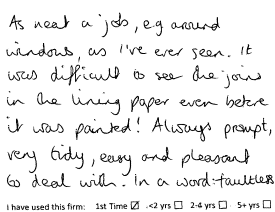 As neat a job, e.g around
windows, as I've ever seen. It
was difficult to see the joins
in the lining paper even before
it was painted! Always prompt,
very tidy, easy and pleasant
to deal with. In a word: faultless
I have used this firm: 1st Time ☑ <2 yrs ☐ 2-4 yrs ☐ 5+ yrs ☐